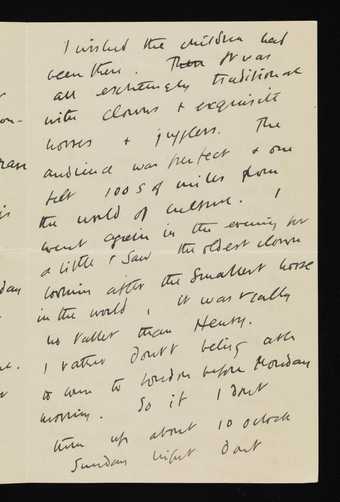 I wished the children had
been there. Then It was
all exceedingly traditional
with clowns & exquisite
horses & jugglers. The
audience was perfect & one
felt 100s of miles from
the world of culture. I
went again in the evening for
a little & saw the oldest clown
looking after the smallest horse
in the world, it was really
no taller than Henry.
I rather doubt being able
to come to London before Monday
morning. So if I dont
turn up about 10 oclock
Sunday night dont